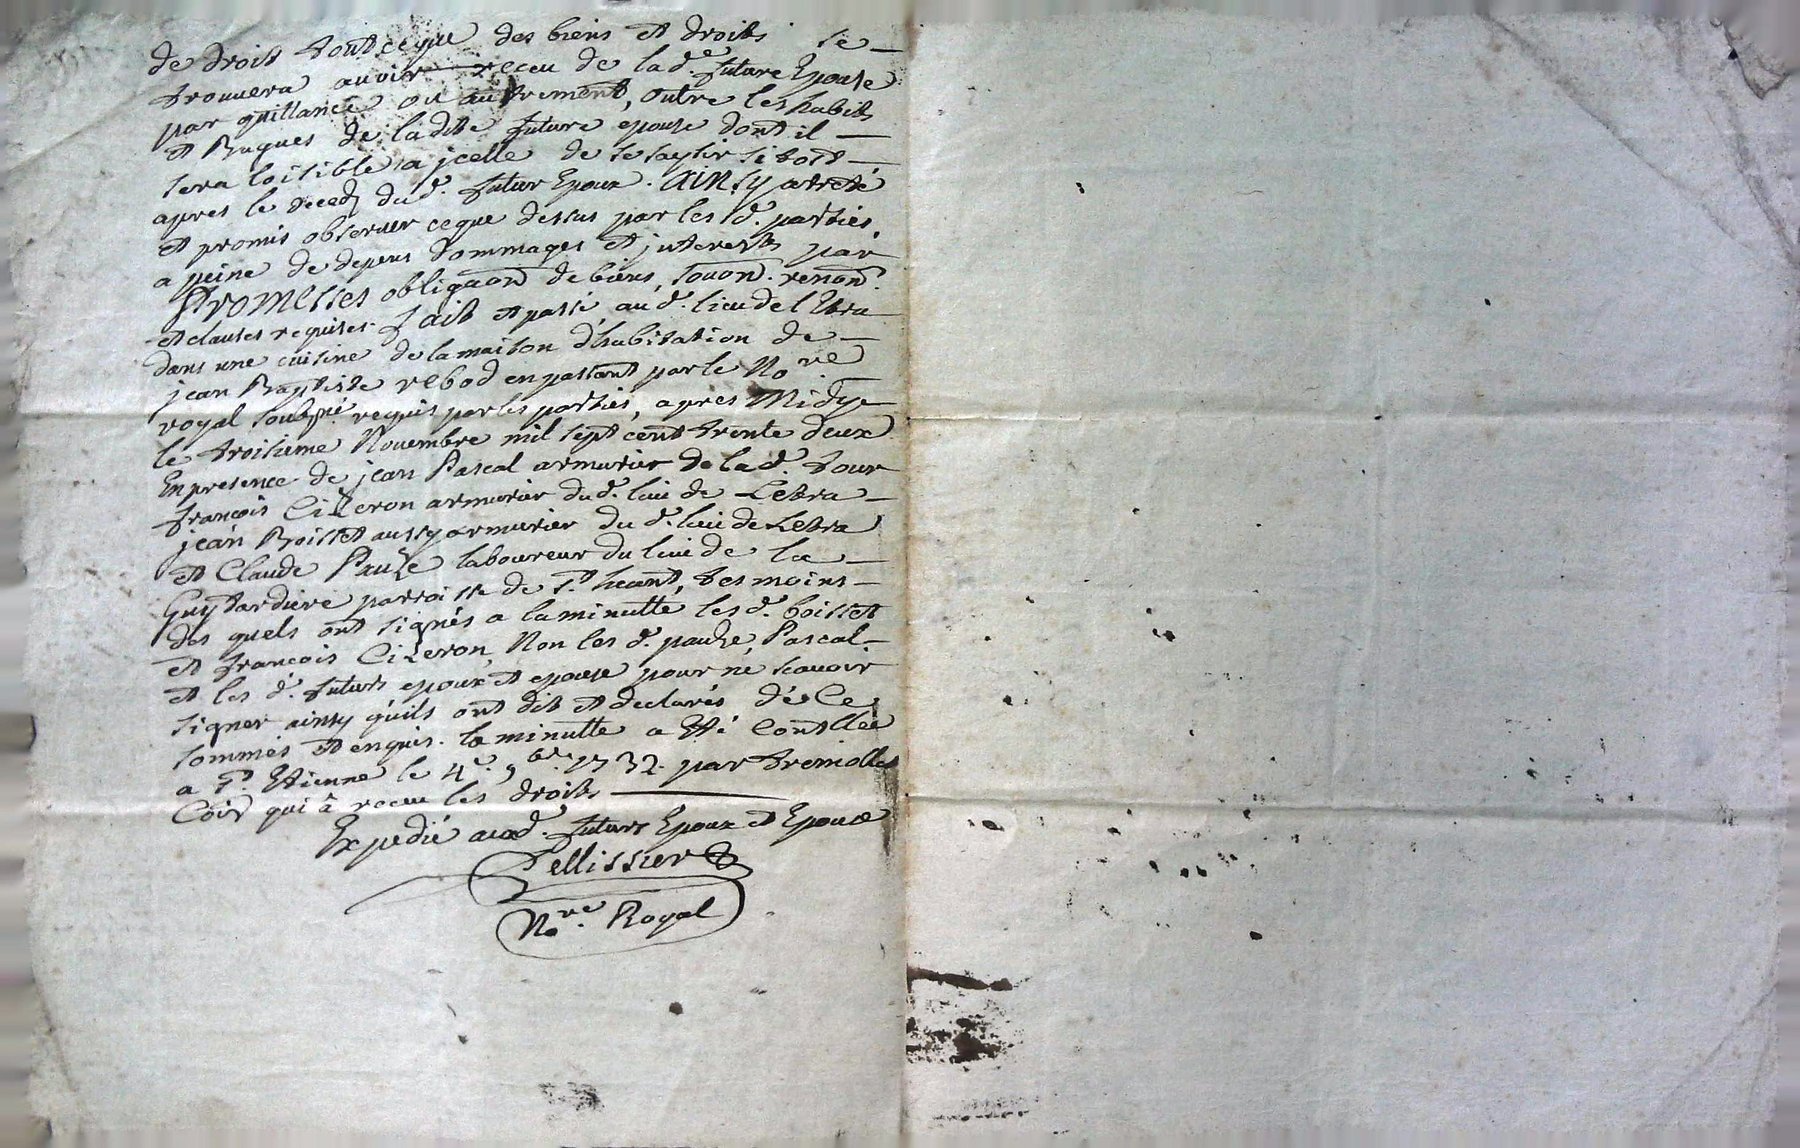 de droit tout ce que des biens et droits se
trouuera auoir receu de la d.e future Epouse
par quittance ou autrement, outre les habits
et Bagues de ladite future epouse dont il
sera loisible a jcelle de se saysir sitost
apres le deced du d. futur Epoux. Ainsy arreté
et promis obseruer ce que dessus par les d. parties,
a peine de depens dommages et jnterests par
Promesses obligãon de biens, soumon. renon.
et clauses requises. fait et passé au d. lieu de l'Etra
dans une cuisine de la maison d'habitation de
jean Baptiste rebod en passant par le No.re
royal soubs.né requis par les parties, apres Midy
le troisieme Nouembre mil sept cent trente deux
En presence de jean Pascal armurier de la d. tour
francois Cizeron armurier du d. lieu de Letra
jean Boisset aussy armurier du d. lieu de Letra
et Claude Pauze laboureur du lieu de la
Guytardiere parroisse de S.t heant, tesmoins
des quels ont signés a la minutte les d. boisset
et francois Cizeron, Non les d. pauze, Pascal
et les d. futurs epoux et epouse pour ne scauoir
signer ainsy qu'ils ont dit et declarés de Ce
sommés et enquis. la minutte a Eté Contllée
a S.t Etienne le 4.e 9bre 1732. par tremolles
Cõis qui à receu les droits
Expedié aux d. futurs Epoux et Epouse
Pellissier
No.re Royal